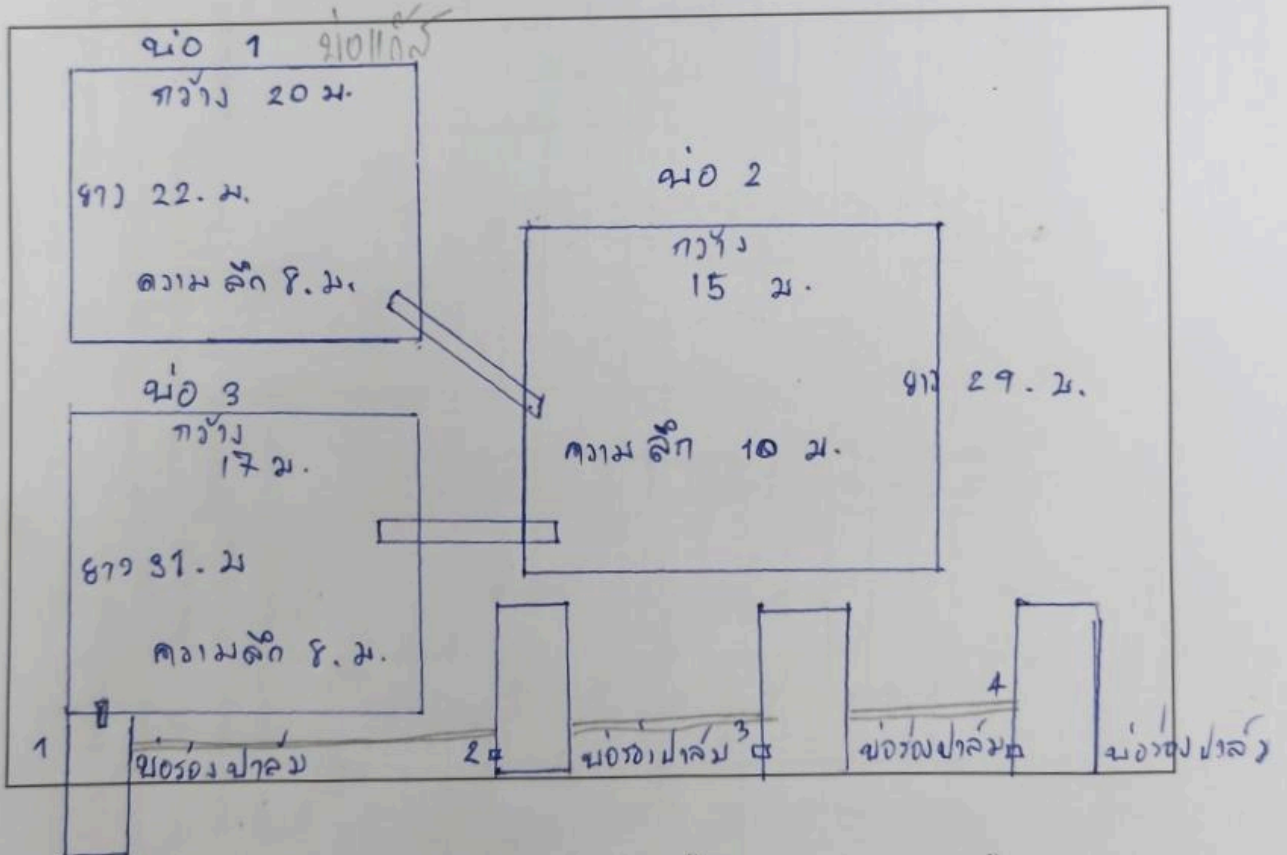 บ่อ 1 บ่อแก๊ส
กว้าง 20 ม.
ยาว 22. ม.
ความลึก 8. ม.
บ่อ 2
กว้าง
15 ม.
ยาว 29. ม.
ความลึก 10 ม.
บ่อ 3
กว้าง
17 ม.
ยาว 31. ม
ความลึก 8. ม.
1 บ่อร่องปาล์ม 2 บ่อร่องปาล์ม 3 บ่อร่องปาล์ม 4 บ่อร่องปาล์ม